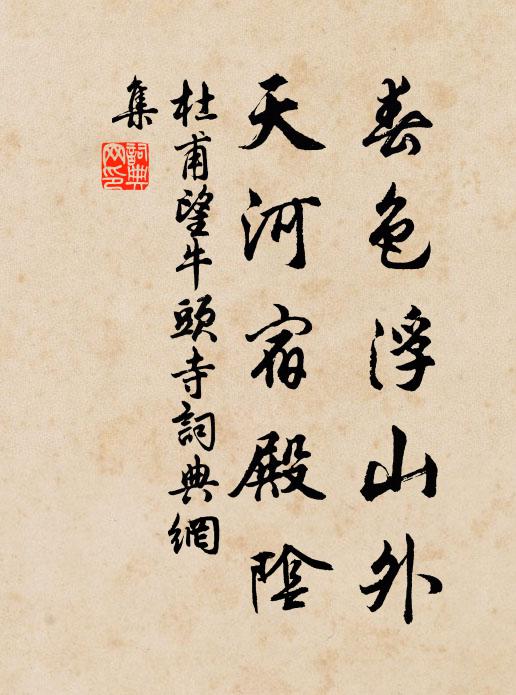 春色浮山外
天河宿殿陰
杜甫望牛頭寺詞典網
集
詞典
网印